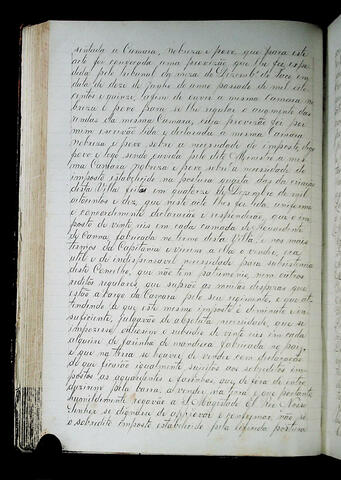 sentada a Camara, nobreza e povo, que para este
acto foi convocada uma provizão que lhe foi expe
dida pelo tribunal da meza do Dezembº do Paço em
data de doze de Junho do anno passado de mil oito
centos e quinze, afim de ouvir a mesma Camara no
breza e povo para se lhe regular o augmento das
rendas da mesma Camara, cuja provizão foi por
mim escrivão lida e declarada á mesma Camara
nobreza e povo sobre a necessidade de imposto digo
povo e logo sendo ouvida pelo dito Ministro a mes
ma Camara nobreza e povo sobre a necessidade do
imposto estabelecido na postura quarta das da creação
desta Villa feitas em quatorze de Dezembro de mil
oitocentos e dez, que neste acto lhes foi lida, uniforme
e concordemente declararão e responderão, que o im
posto de vinte reis em cada camada de Aguardente
de Canna fabricada no termo desta Villa, e nos mais
termos da Capitania e vierem a ella a vender, era
util e de indispensavel necessidade para subsistencia
deste Conselho, que não tem patrimonio, nem outros
reditos regulares, que suprão as varias despezas que
estão a cargo da Camara pelo seu regimento, e que at
tendendo a que este mesmo imposto é diminuto e in
suficiente, julgavão de absoluta necessidade, que se
impozesse o subsidio de vinte reis em cada
alqueire de farinha de mandioca fabricada no paiz
e que na terra se houver de vender com declaração
de que ficarão igualmente sujeitos aos sobreditos im
postos as aguardentes e farinhas, que de fora se intro
duzirem pela barra, a vender na terra e que portanto
humildemente rogavão a S. Magestade El Rei Nosso
Senhor se dignasse de approvar e confirmar, não só
o sobredito imposto estabelecido pela referida postura